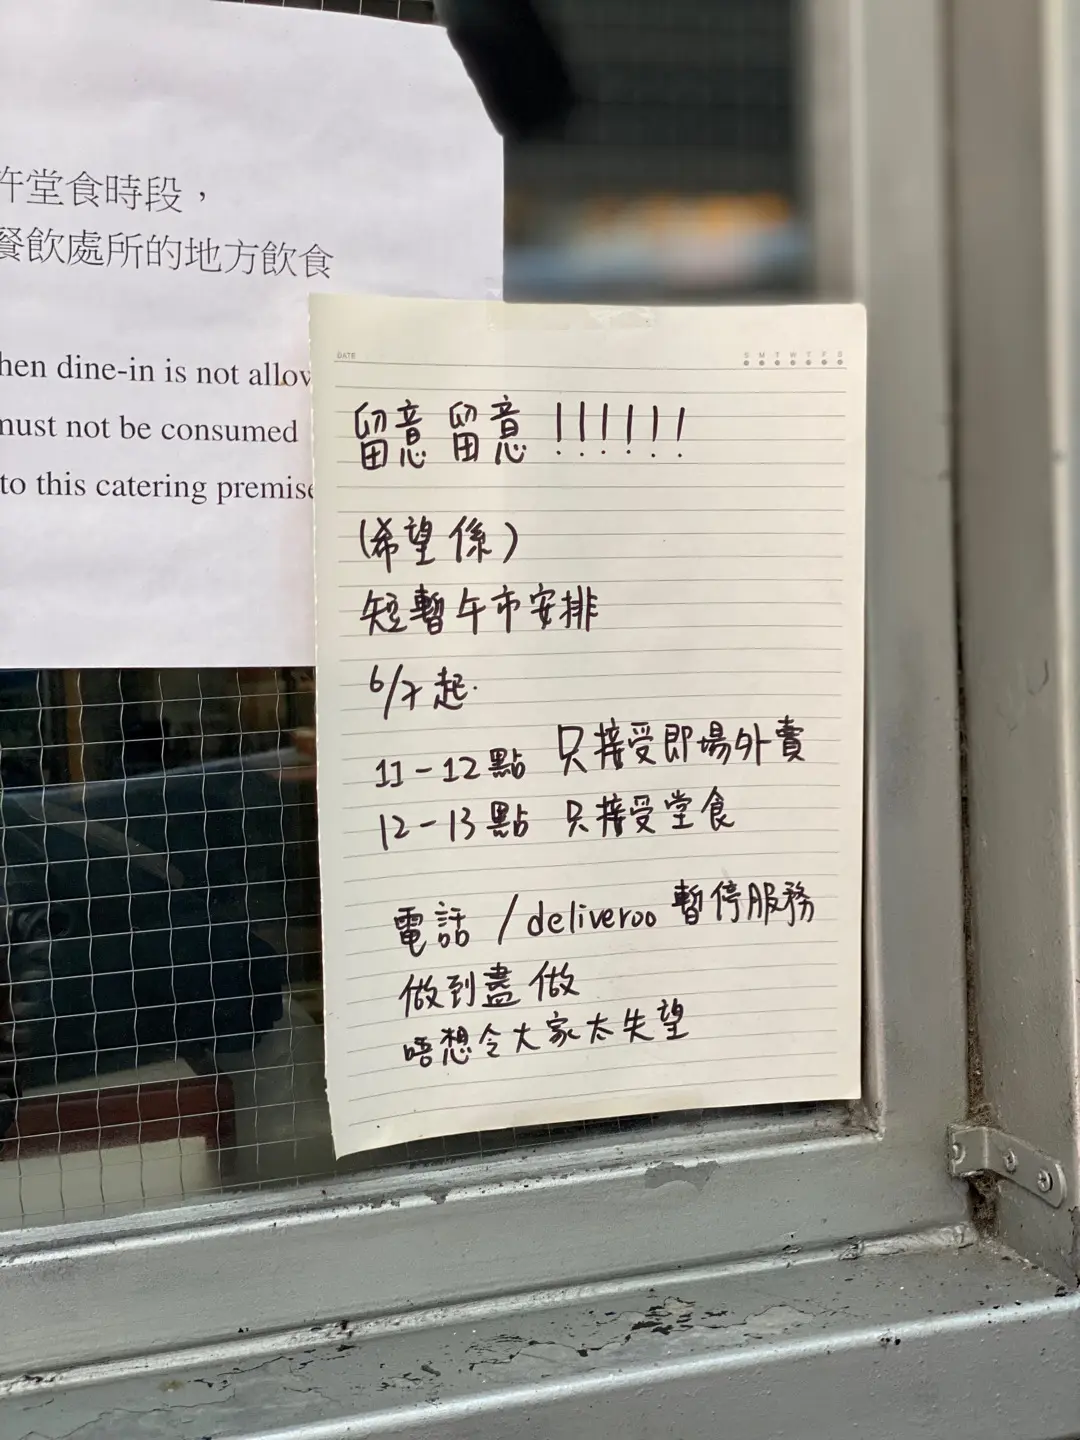 許堂食時段，
餐飲處所的地方飲食
hen dine-in is not allow
must not be consumed
to this catering premise
DATE S M T W T F S
留意 留意 ! ! ! ! ! !
(希望係)
短暫午市安排
6/7起.
11-12點 只接受即場外賣
12-13點 只接受堂食
電話 / deliveroo 暫停服務
做到盡做
唔想令大家太失望